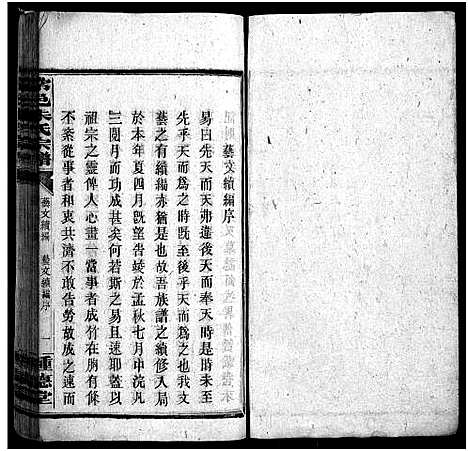 藝文續編序
易曰先天而天弗違後天而奉天時時未至
先乎天而為之時既至後乎天而為之我文
藝之有續編亦猶是也故吾族譜之續修入局
於本年夏四月既望告竣於孟秋七月中浣凡
三閱月而功成甚矣何若斯之易且速耶蓋以
祖宗之靈俾人心畫一當事者成竹在胸有條
不紊從事者和衷共濟不敢告勞故成之速而
邑朱氏宗譜
藝文續編 藝文續編序
一